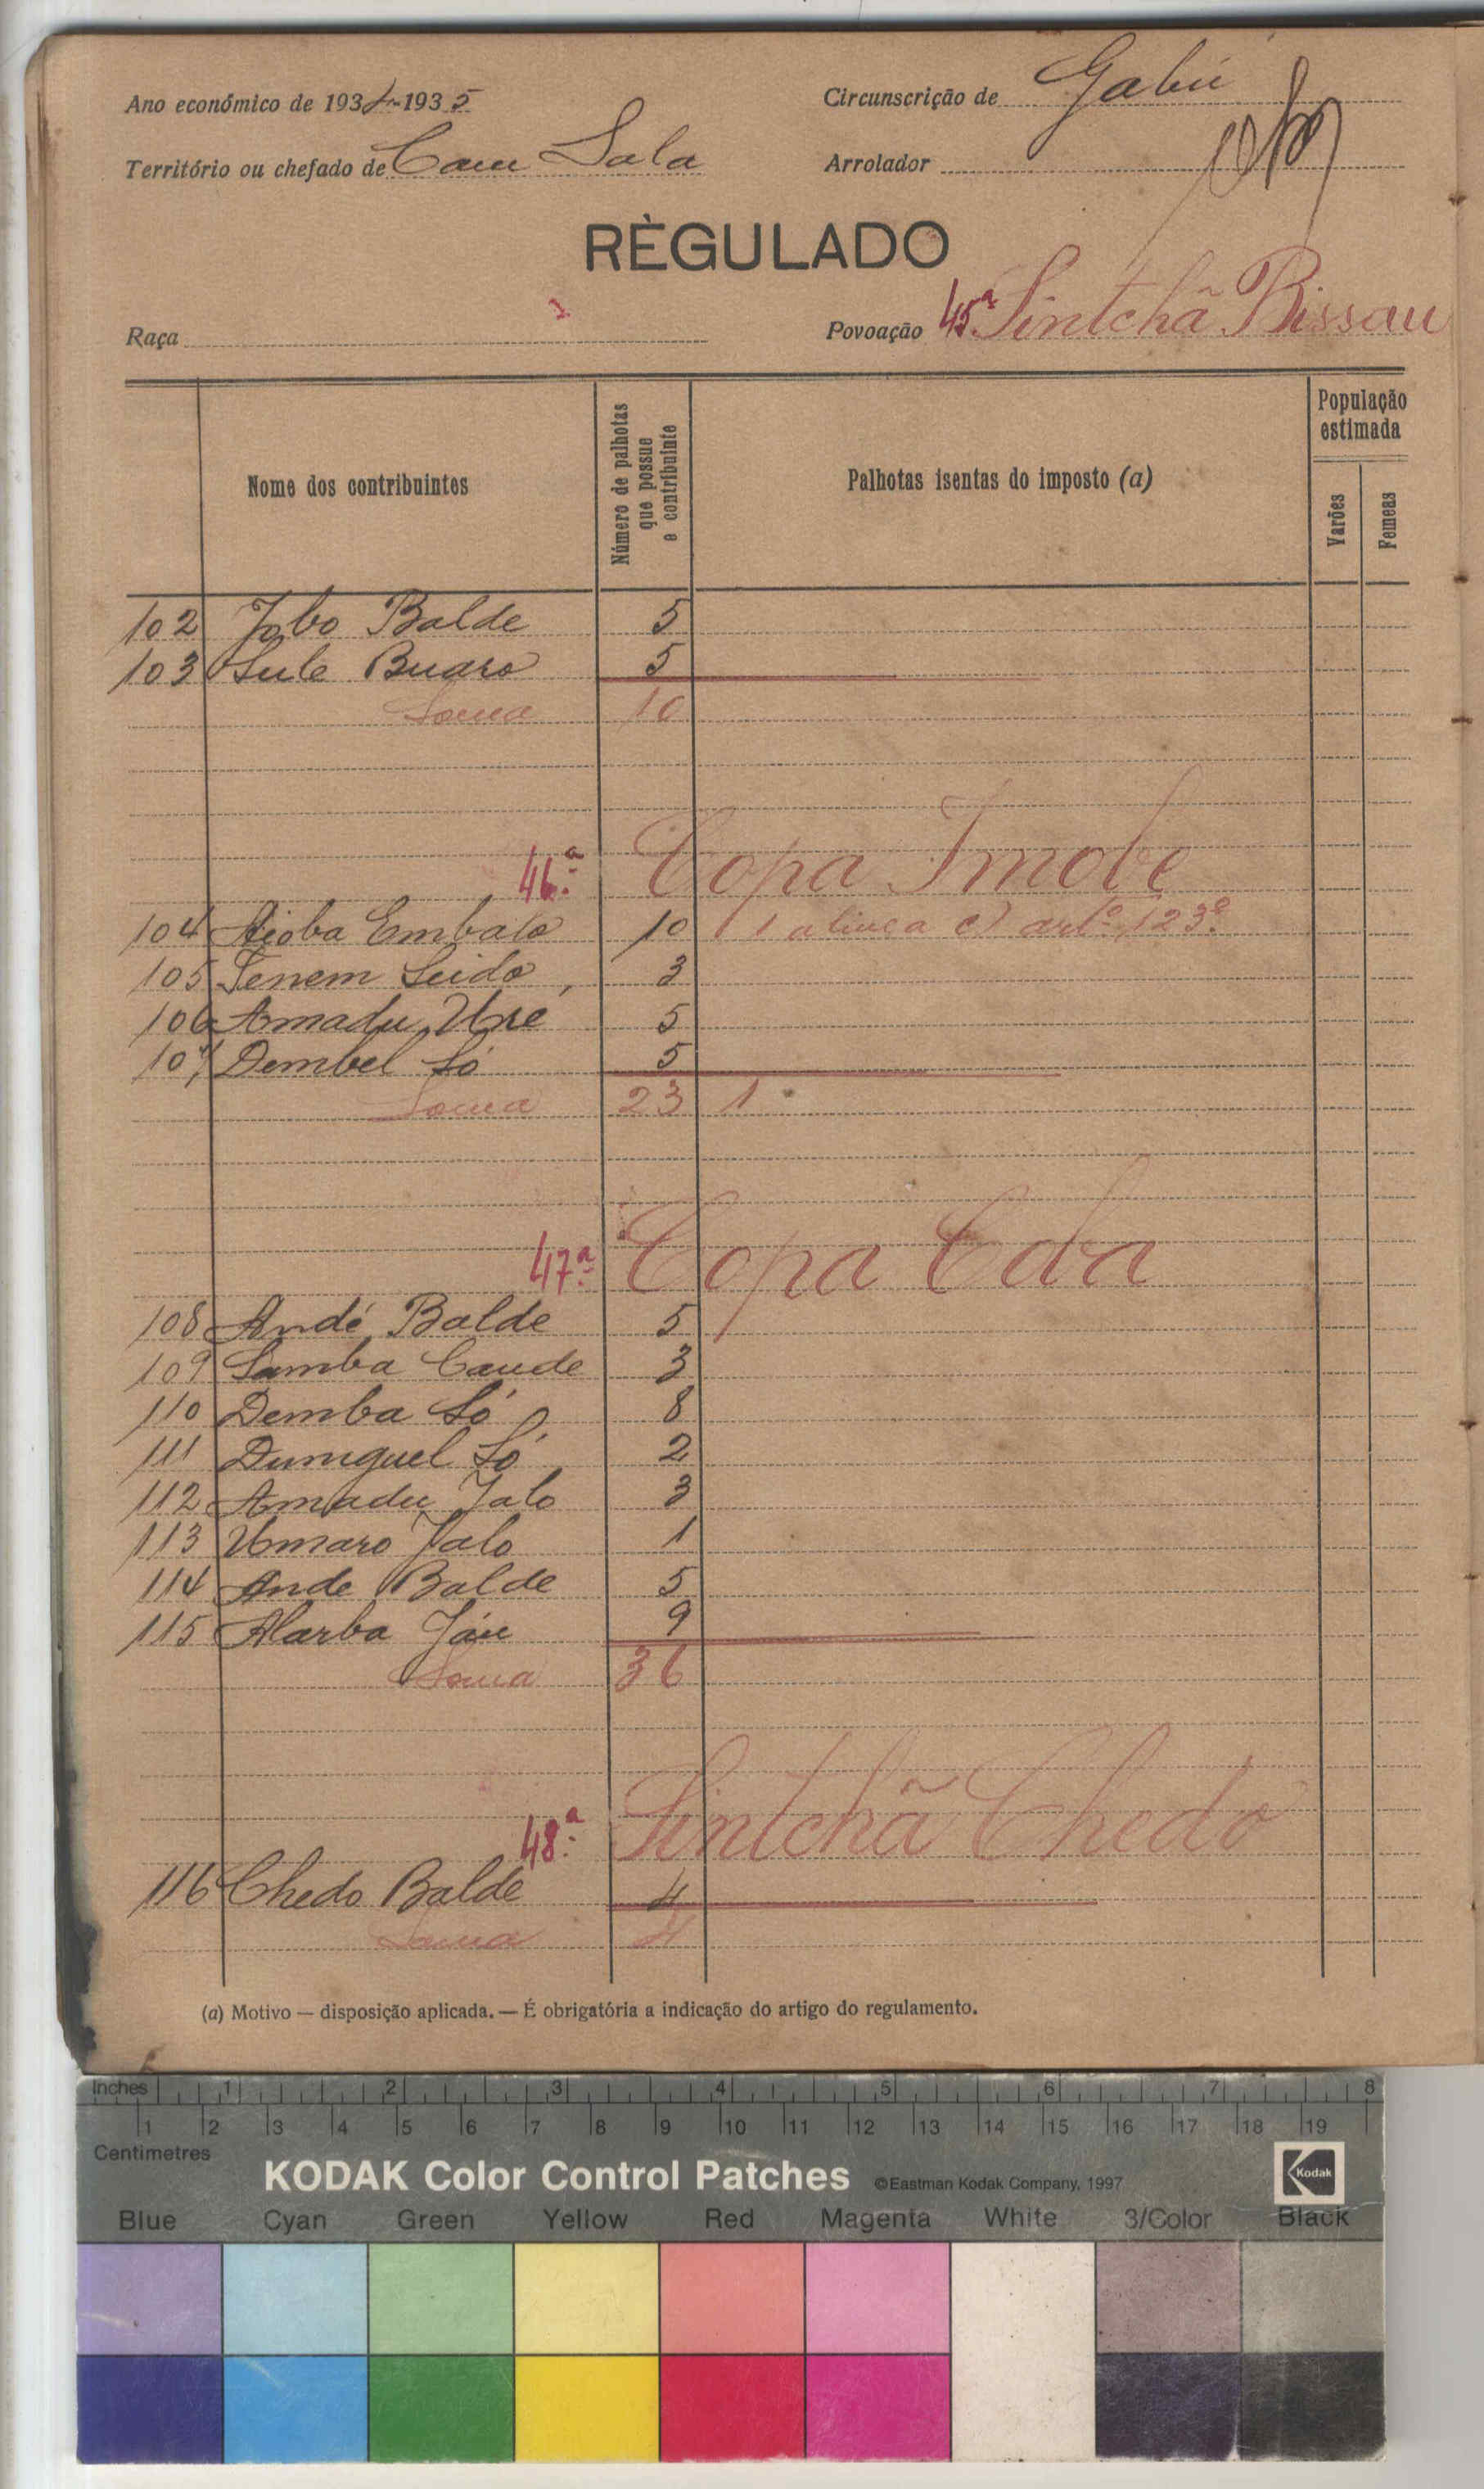 Ano económico de 1934-1935
Circunscrição de Gabú
Território ou chefado de Cam Sala
Arrolador
RÈGULADO
Raça
Povoação 45ª Sintchã Bissau
Nome dos contribuintes
Número de palhotas que possue o contribuinte
Palhotas isentas do imposto (a)
População estimada
Varões
Femeas
102 Jobo Balde 5
103 Sule Buaro 5
Soma 10
46ª Copa Imobe
104 Aioba Embalo 10 1 alinea c) artº 123º
105 Tenem Seido 3
106 Amadu Uré 5
107 Dembel Só 5
Soma 23 1
47ª Copa Cda
108 Andé Balde 5
109 Samba Caude 3
110 Demba Só 8
111 Dumguel Só 2
112 Amadu Jalo 3
113 Umaro Jalo 1
114 Ande Balde 5
115 Alarba Jáu 9
Soma 36
48ª Sintchã Chedo
116 Chedo Balde 4
Soma 4
(a) Motivo — disposição aplicada. — É obrigatória a indicação do artigo do regulamento.
Inches 1 2 3 4 5 6 7 8
1 2 3 4 5 6 7 8 9 10 11 12 13 14 15 16 17 18 19
Centimetres
KODAK Color Control Patches ©Eastman Kodak Company, 1997 Kodak
Blue Cyan Green Yellow Red Magenta White 3/Color Black